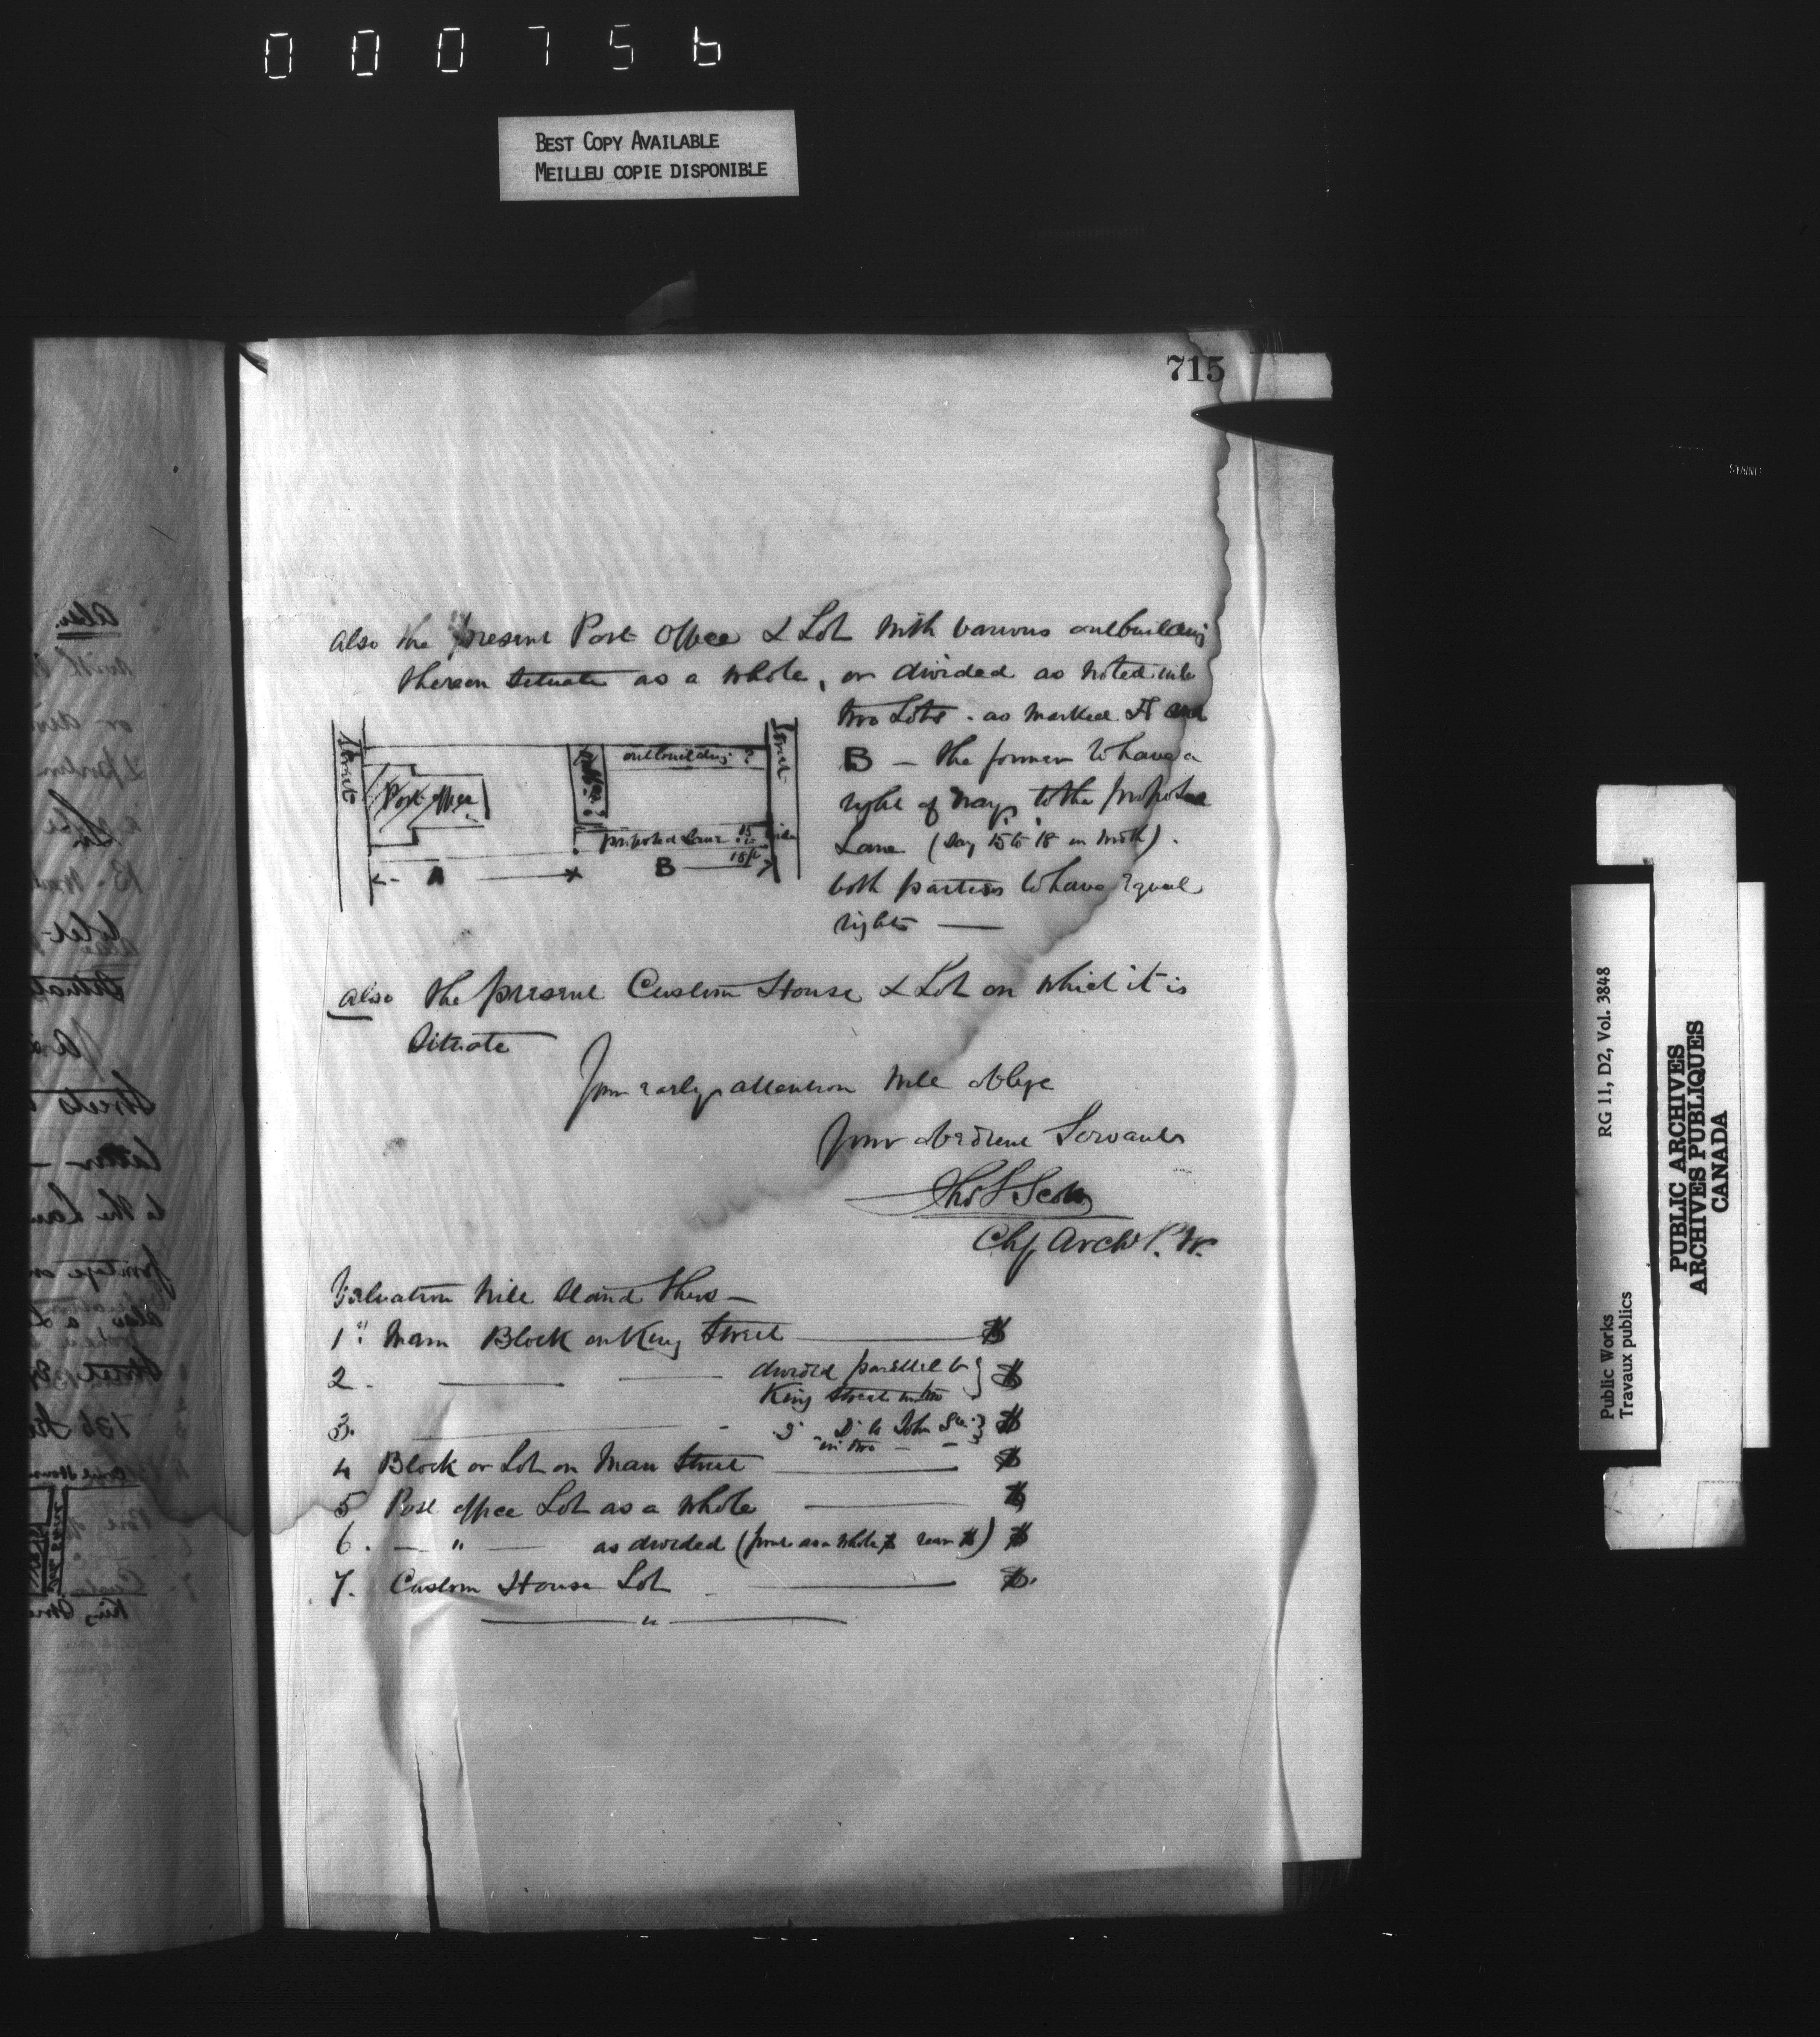 000756
BEST COPY AVAILABLE
MEILLEU COPIE DISPONIBLE
715
also the present Post Office & Lot with various outbuildings
thereon situate as a whole, or divided as noted into
two Lots - as marked A and
B - the former to have a
right of way to the proposed
Lane (say 15 to 18 in width).
both parties to have equal
rights —
Street
Post office
outbuilding ?
Street
proposed Lane 15 to
18 ft
A
B
also the present Custom House & Lot on which it is
situate
Your early attention will oblige
Your obedient Servant
Thos S Scott
Chf Archt P. W.
Valuation will stand thus —
1st Main Block on King Street — $
2. — — divided parallel to } $
King Street in two
3. — Do Do to John St. } $
in two — —
4 Block or Lot on Main Street — $
5 Post office Lot as a whole — $
6. — " — as divided (front as a whole $ rear $) $
7. Custom House Lot — $.
— " —
Public Works
Travaux publics
RG 11, D2, Vol. 3848
PUBLIC ARCHIVES
ARCHIVES PUBLIQUES
CANADA